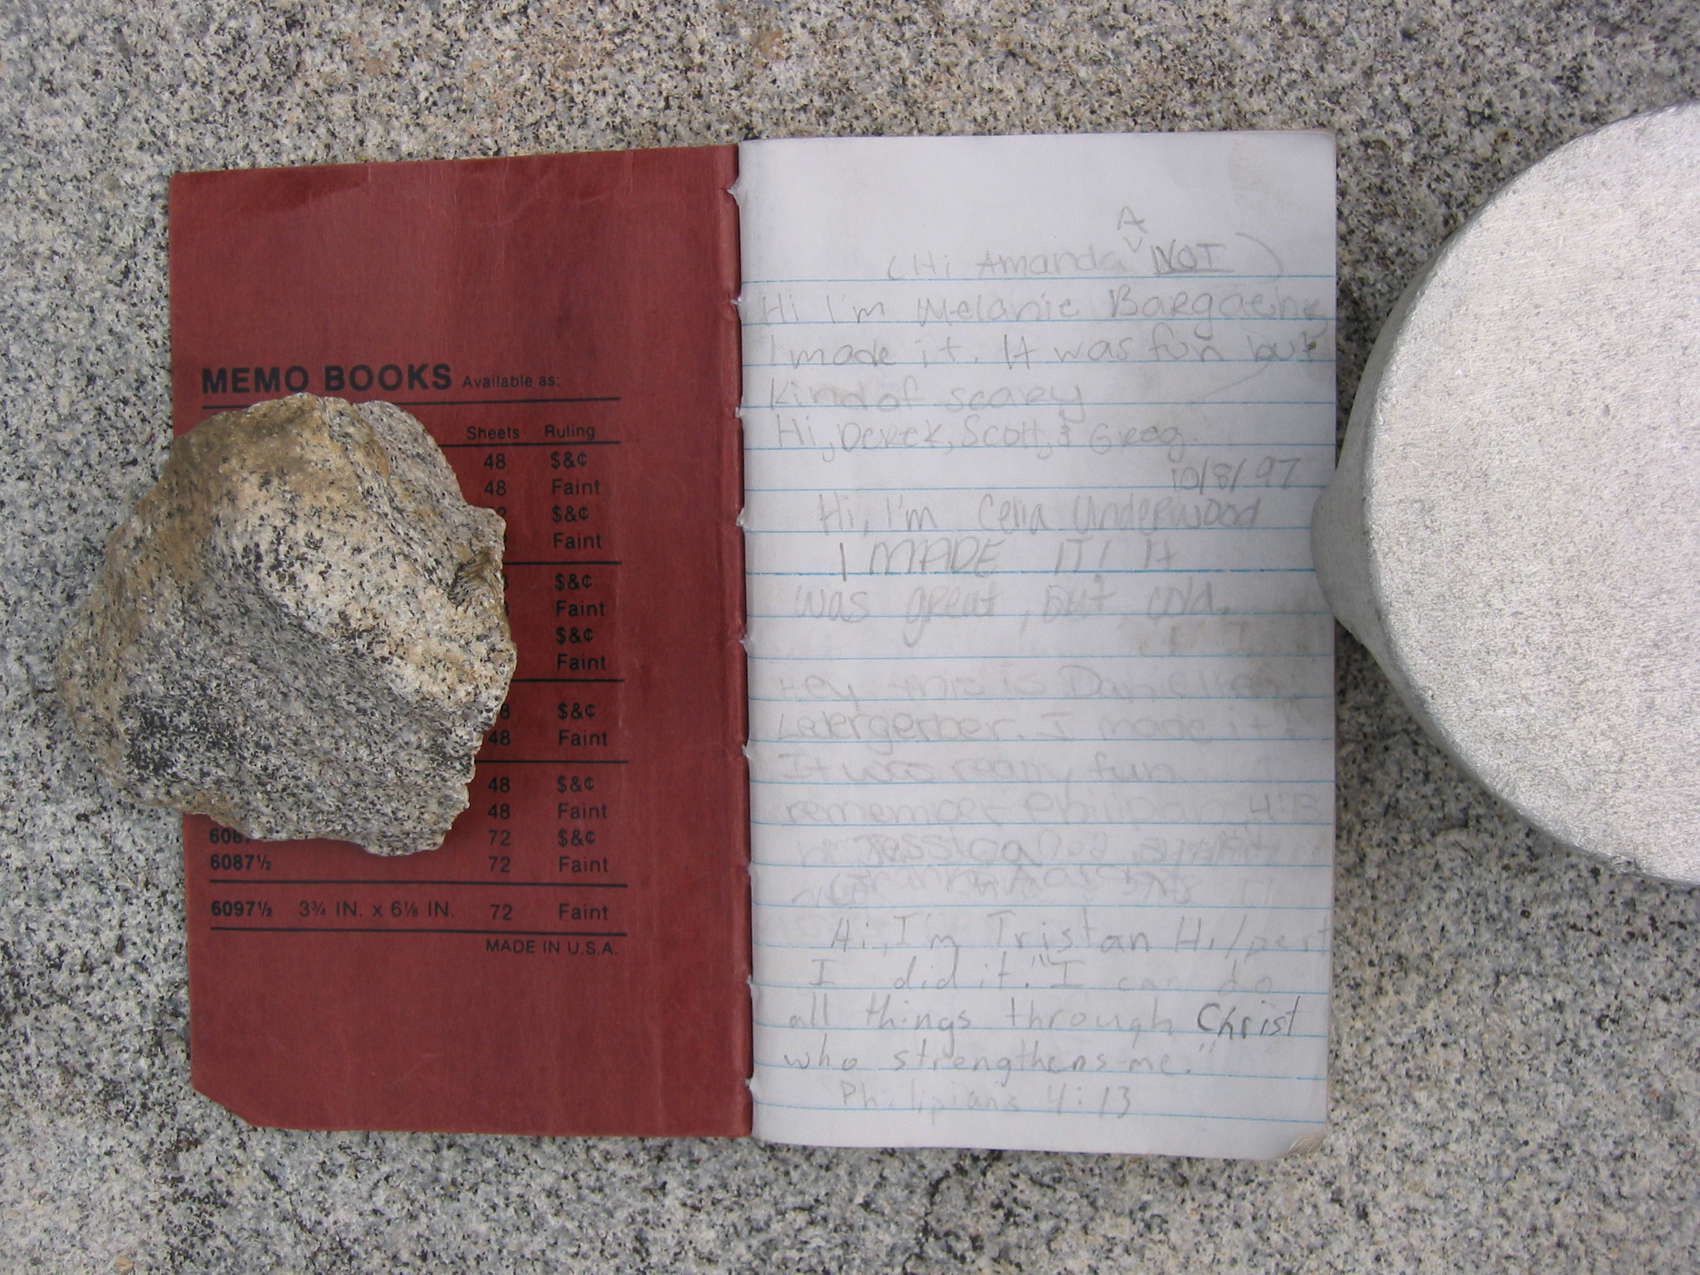 MEMO BOOKS Available as:
Sheets Ruling
48 $&¢
48 Faint
$&¢
Faint
$&¢
Faint
$&¢
Faint
$&¢
48 Faint
48 $&¢
48 Faint
72 $&¢
6087½ 72 Faint
6097½ 3¾ IN. x 6⅛ IN. 72 Faint
MADE IN U.S.A.
A
(Hi Amanda NOT)
Hi I'm Melanie
I made it. It was fun but
Kind of scarey
Hi, Derek, Scott, & Greg
10/8/97
Hi, I'm Celia Underwood
I MADE IT! It
was great, but cold.
Hey this is
I made it!
It was really fun
remember 4:13
Hi, I'm Tristan Hilpert
I did it. "I can do
all things through Christ
who strengthens me."
Philipians 4:13